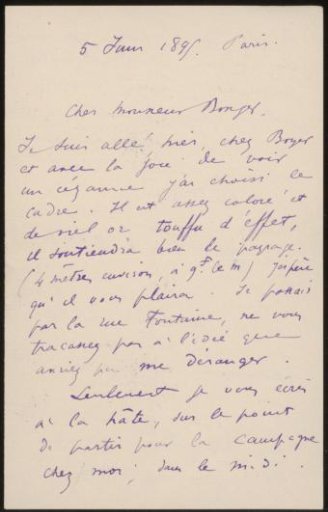 5 Juin 189 Paris.
Cher monsieur Bonger.
Je suis allé, hier, chez Boyer
et avec la joie de voir
un cezanne j'ai choisi le
cadre. Il est assez coloré et
de vieil or touffu d'effet,
il soutiendra bien le paysage.
(4 mètres environ, à 9f le m) j'espère
qu'il vous plaira. Je passais
par la rue Fontaine, ne vous
tracassez pas à l'idée que
auriez pu me déranger.
Seulement je vous écris
à la hâte, sur le point
de partir pour la campagne
chez moi, dans le midi.